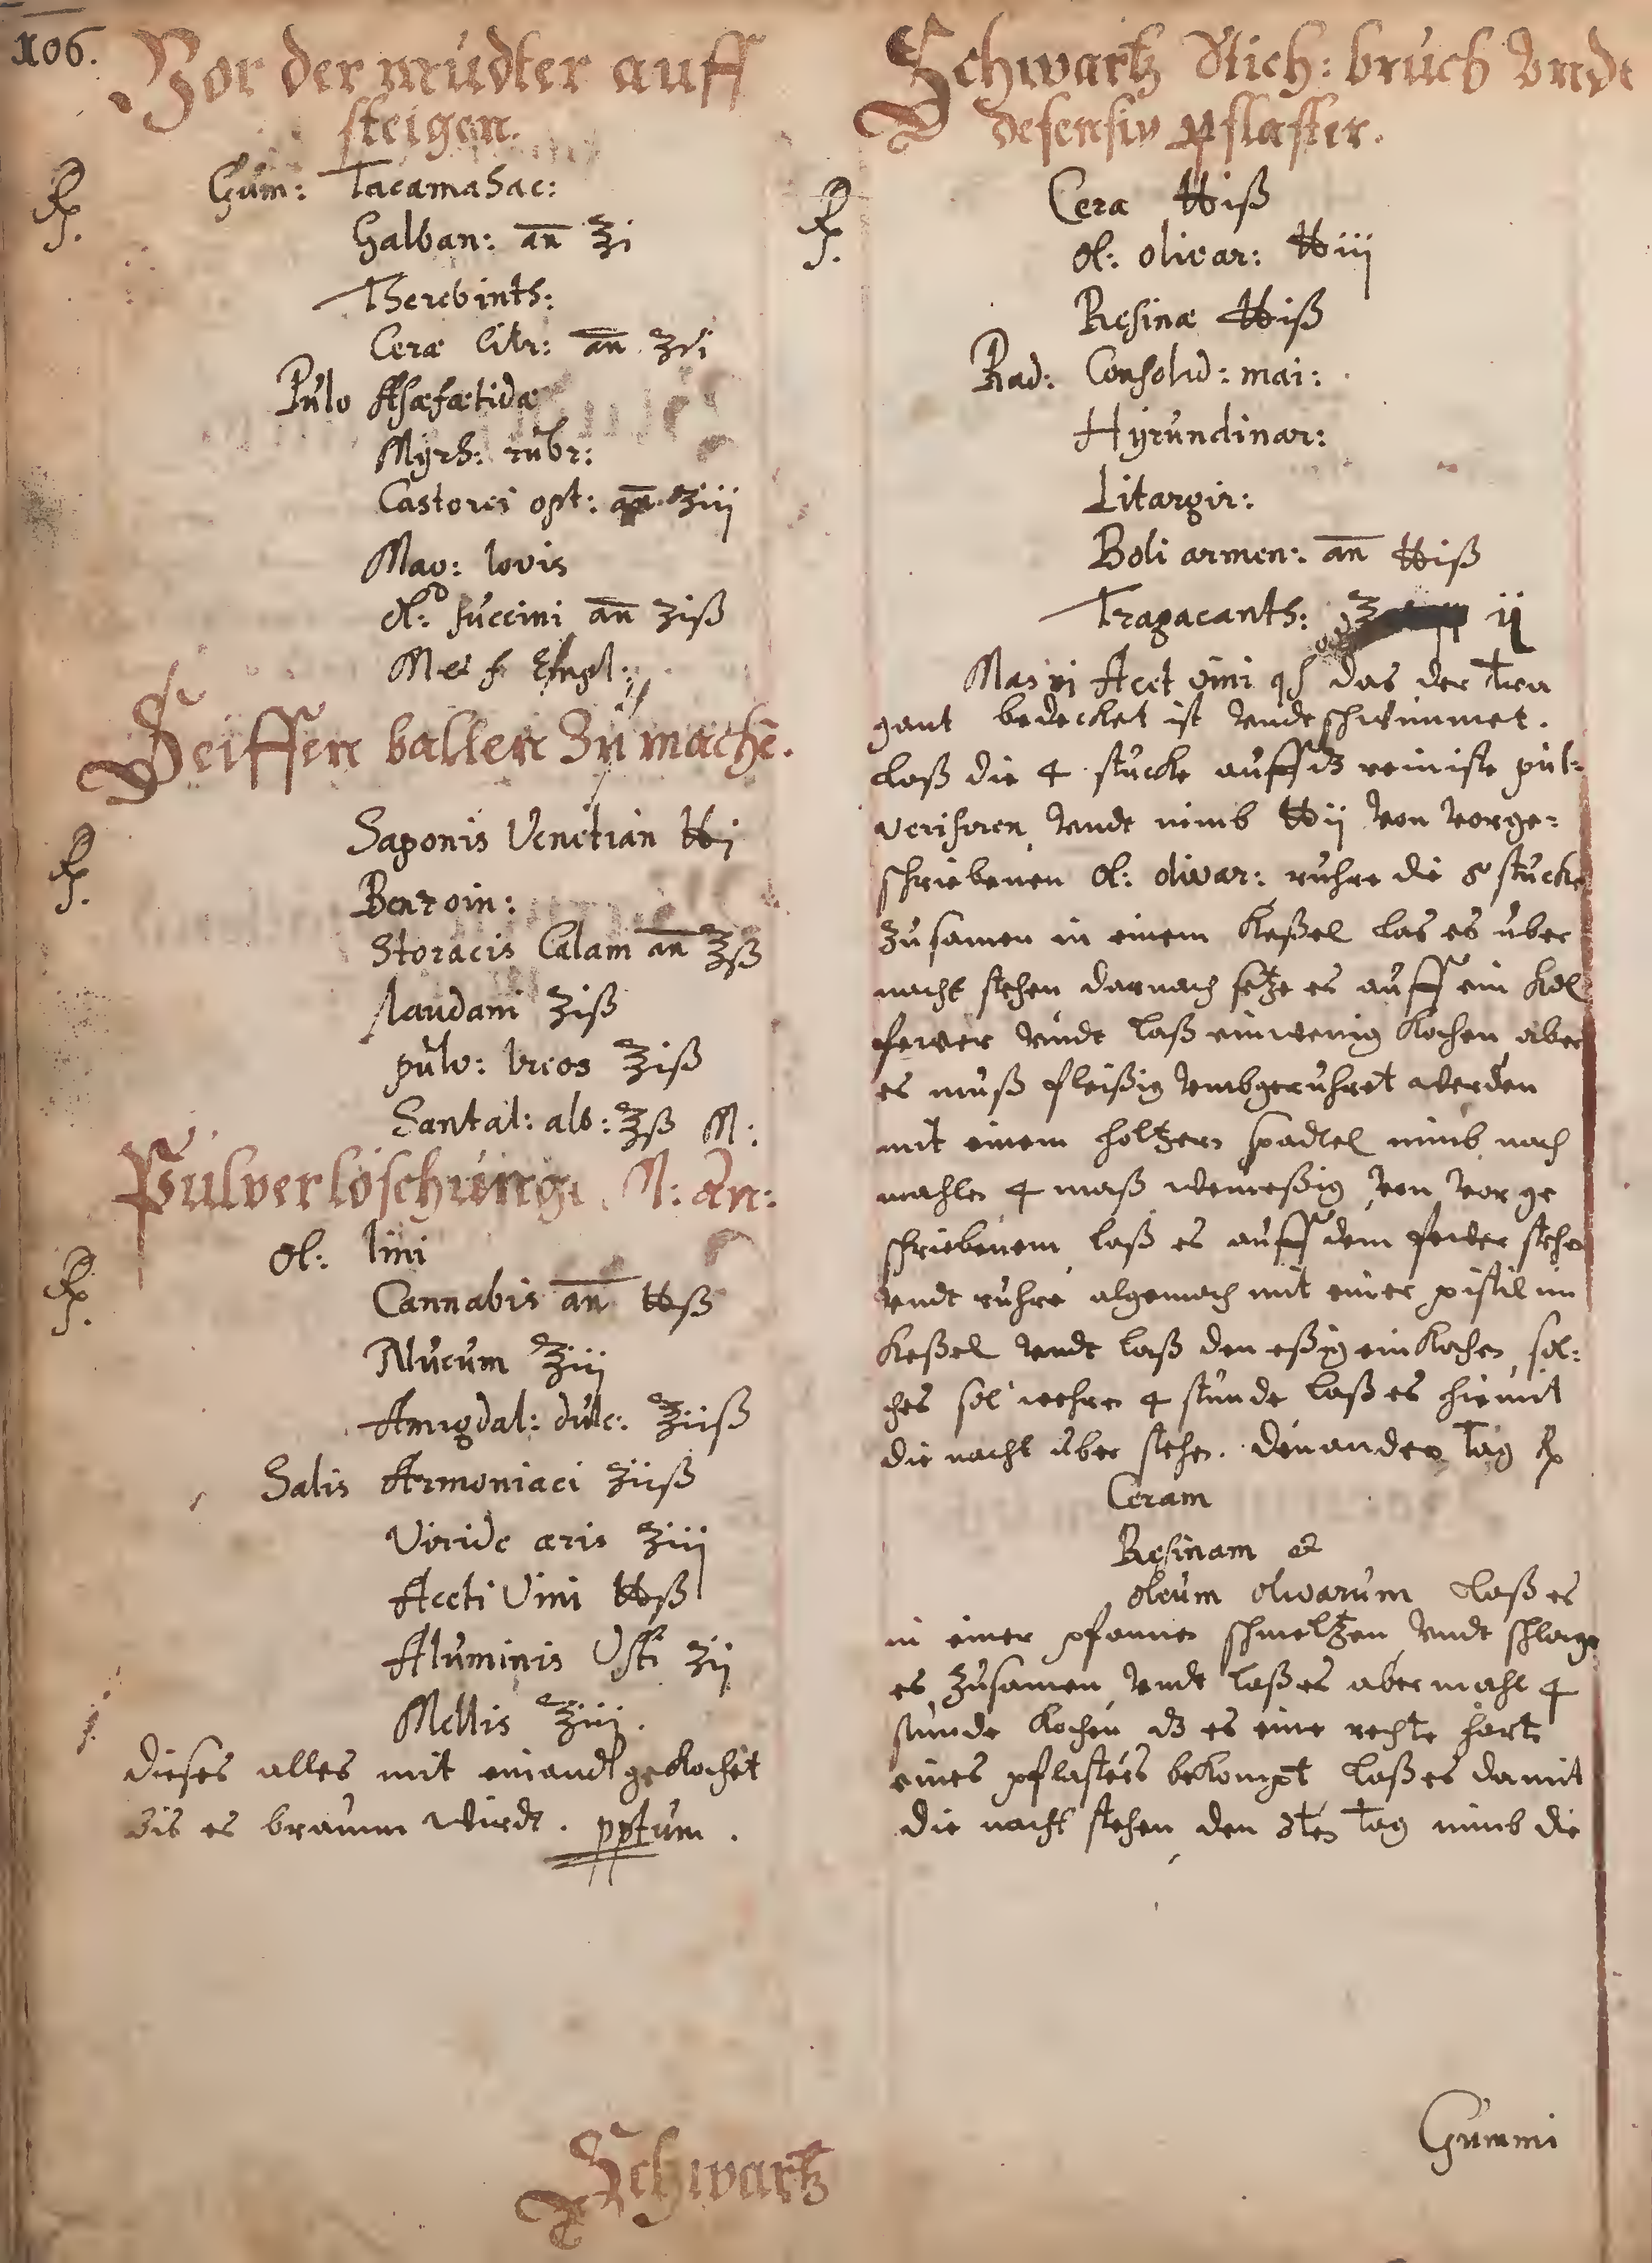 106.
Vor der mudter auff
steigen.
℞.
Gum: Tacamahac:
Galban: an ℥i
Therebinth:
Ceræ Citr: an ʒvi
Pulv Asæfætidæ
Myrh: rubr:
Castorei opt: an ʒiij
Mav: Iovis
Ol: succini an ʒiß
M et f Empl:
Seiffen ballen Zu mache.
℞.
Saponis Venetian ℔j
Benzoin:
Storacis Calam an ℥ß
Laudani ʒiß
pulv: Ireos ℥iß
Santal: alb: ℥ß M:
Pulverlöschung. N: an:
℞.
Ol: lini
Cannabis an ℔ß
Nucum ℥iij
Amigdal: dulc: ℥iiß
Salis Armoniaci ʒiiß
Viride æris ℥iij
Aceti Vini ℔ß
Aluminis Usti ʒij
Mellis ℥iij.
dieses alles mit einand gekochet
bis es braun wirdt. pptum.
Schwartz
Schwartz Stich: bruch Undt
defensiv pflaster.
℞.
Cera ℔iß
Ol: olivar: ℔iij
Resinæ ℔iß
Rad: Consolid: mai:
Hyrundinar:
Litargir:
Boli armen: an ℔iß
Tragacanth: ℥ ij
Mas vj Acet vini qs das der Tra
gant bedecket ist undt schwimmet.
laß die 4 stucke auff dz reinste pul:
verisiren undt nimb ℔ij von vorge:
schriebenen Ol: olivar: ruhre die 8 stucke
zusamen in einem Keßel las es uber
nacht stehen darnach setze es auff ein Kol
fewer undt laß ein wenig Kochen aber
es muß fleißig umbgeruhret werden
mit einem holtzern spadlel nimb noch
mahlen 4 maß weineßig von vor ge
schriebenem laß es auff dem fewer stehn
undt ruhre algemach mit einer pistil im
Keßel undt laß den eßig ein Kochen sol:
ches sol wehren 4 stunde laß es hiemit
die nacht uber stehen. den andern Tag ℞
Ceram
Resinam et
oleum olivarum laß es
in einer pfannen schmeltzen undt schlage
es zusamen undt laß es abermahl 4
stunde Kochen dz es eine rechte harte
eines pflasters bekompt laß es damit
die nacht stehen den 3ten Tag nimb die
Gummi